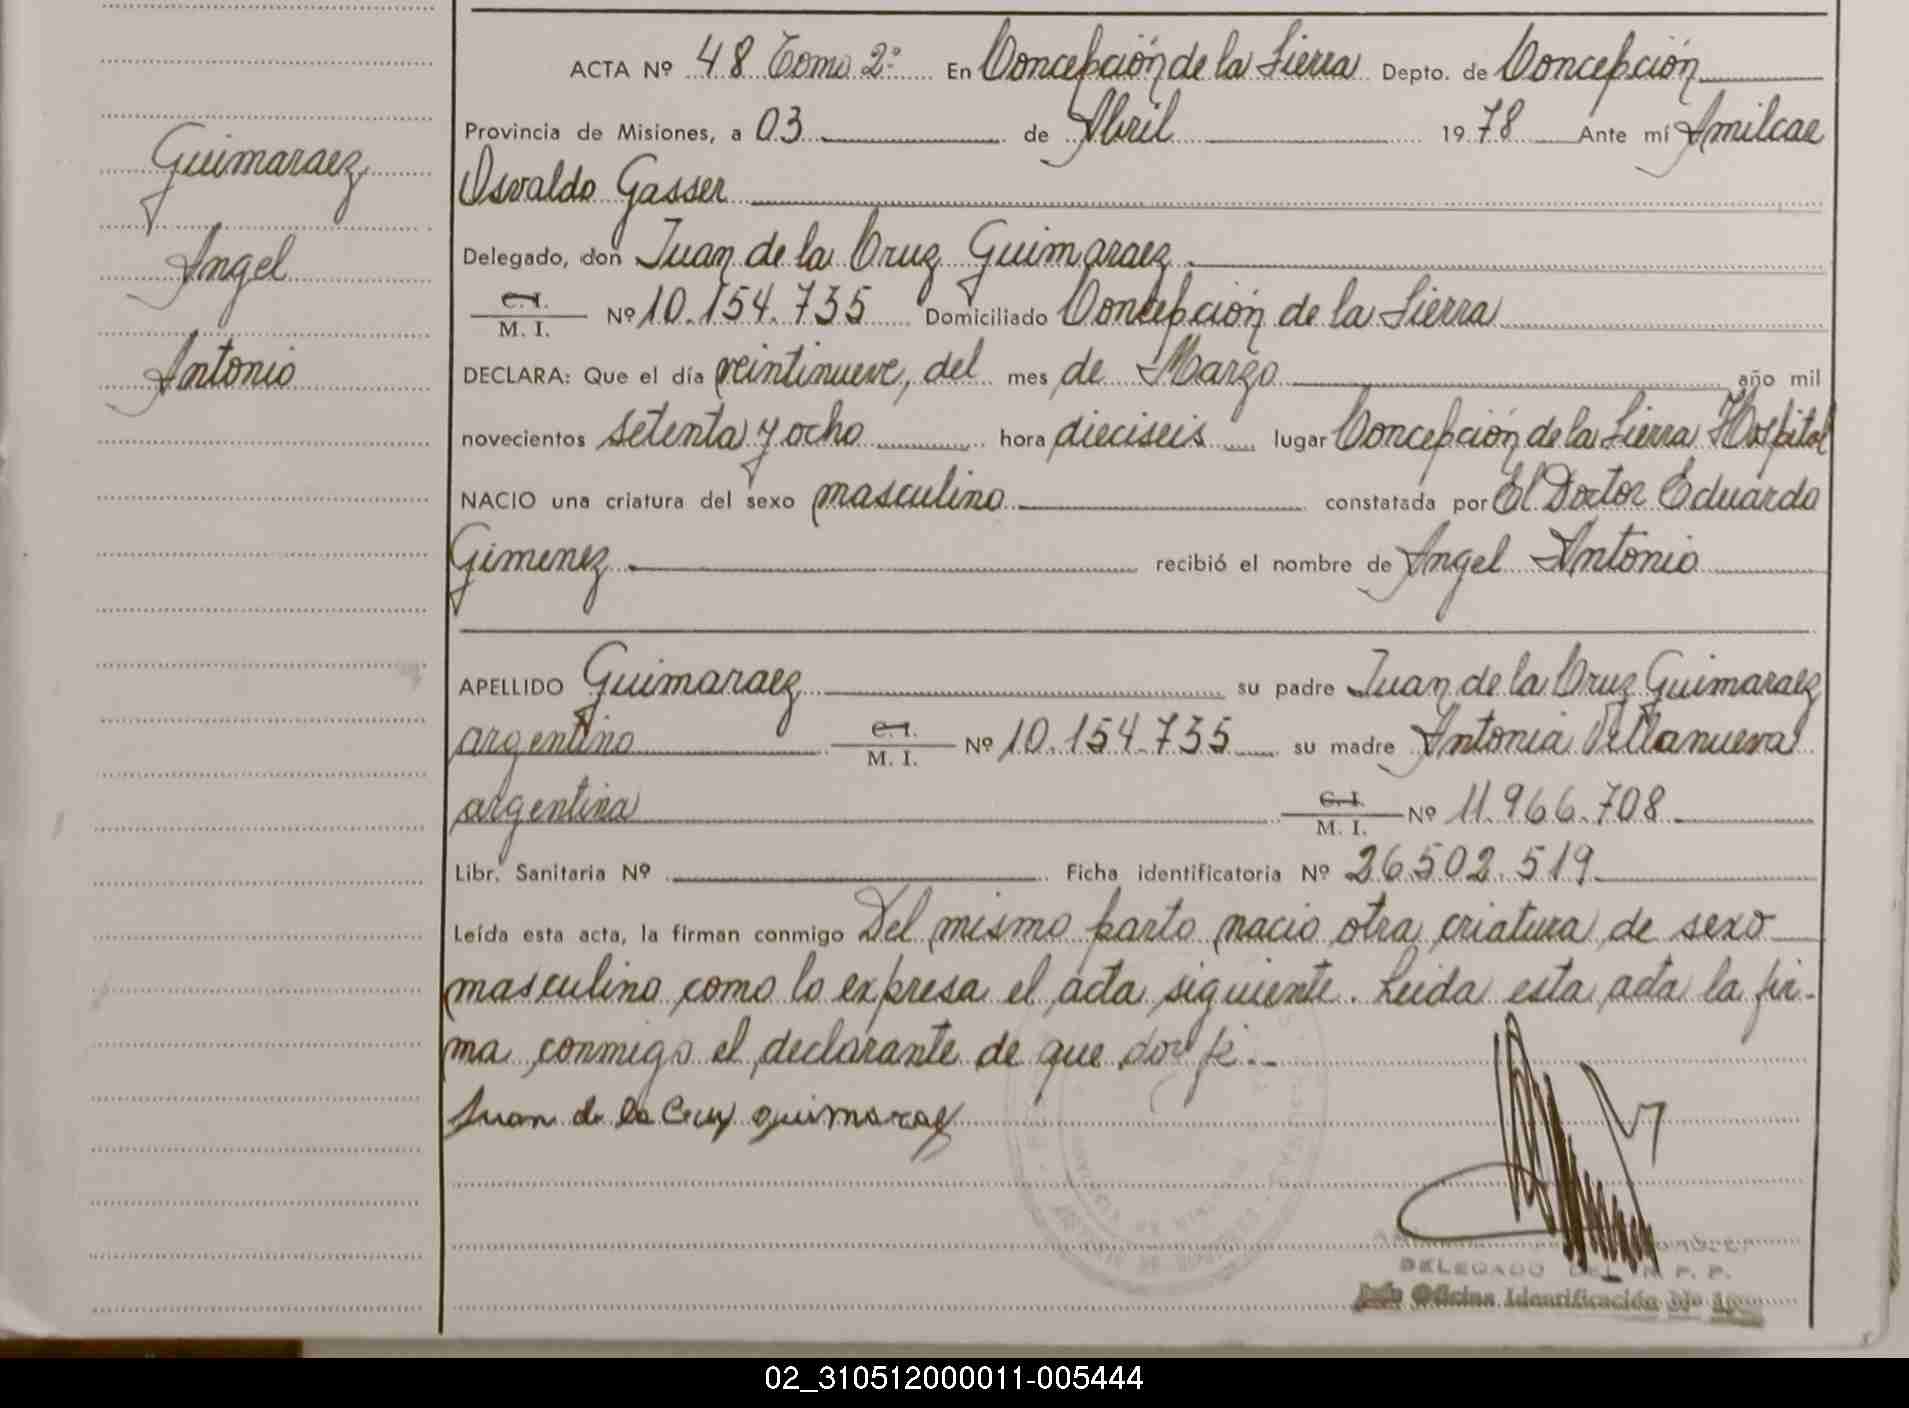 Guimaraez
Angel
Antonio
ACTA Nº 48 Tomo 2º En Concepción de la Sierra Depto. de Concepción
Provincia de Misiones, a 03 de Abril 1978 Ante mí Amilcar
Osvaldo Gasser
Delegado, don Juan de la Cruz Guimaraez
C.I.
M. I. Nº 10.154.735 Domiciliado Concepción de la Sierra
DECLARA: Que el día veintinueve, del mes de Marzo año mil
novecientos setenta y ocho hora dieciseis lugar Concepción de la Sierra Hospital
NACIO una criatura del sexo masculino constatada por El Doctor Eduardo
Gimenez recibió el nombre de Angel Antonio
APELLIDO Guimaraez su padre Juan de la Cruz Guimaraez
argentino C.I. M. I. Nº 10.154.735 su madre Antonia Villanueva
argentina C.I. M. I. Nº 11.966.708
Libr. Sanitaria Nº Ficha identificatoria Nº 26.502.519
Leída esta acta, la firman conmigo Del mismo parto nacio otra criatura de sexo
masculino como lo expresa el acta siguiente. Leida esta acta la fir-
ma conmigo el declarante de que doy fé.-
Juan de la Cruz guimaraez
DELEGADO DEL R. P. P.
Jefe Oficina Identificación
02_310512000011-005444